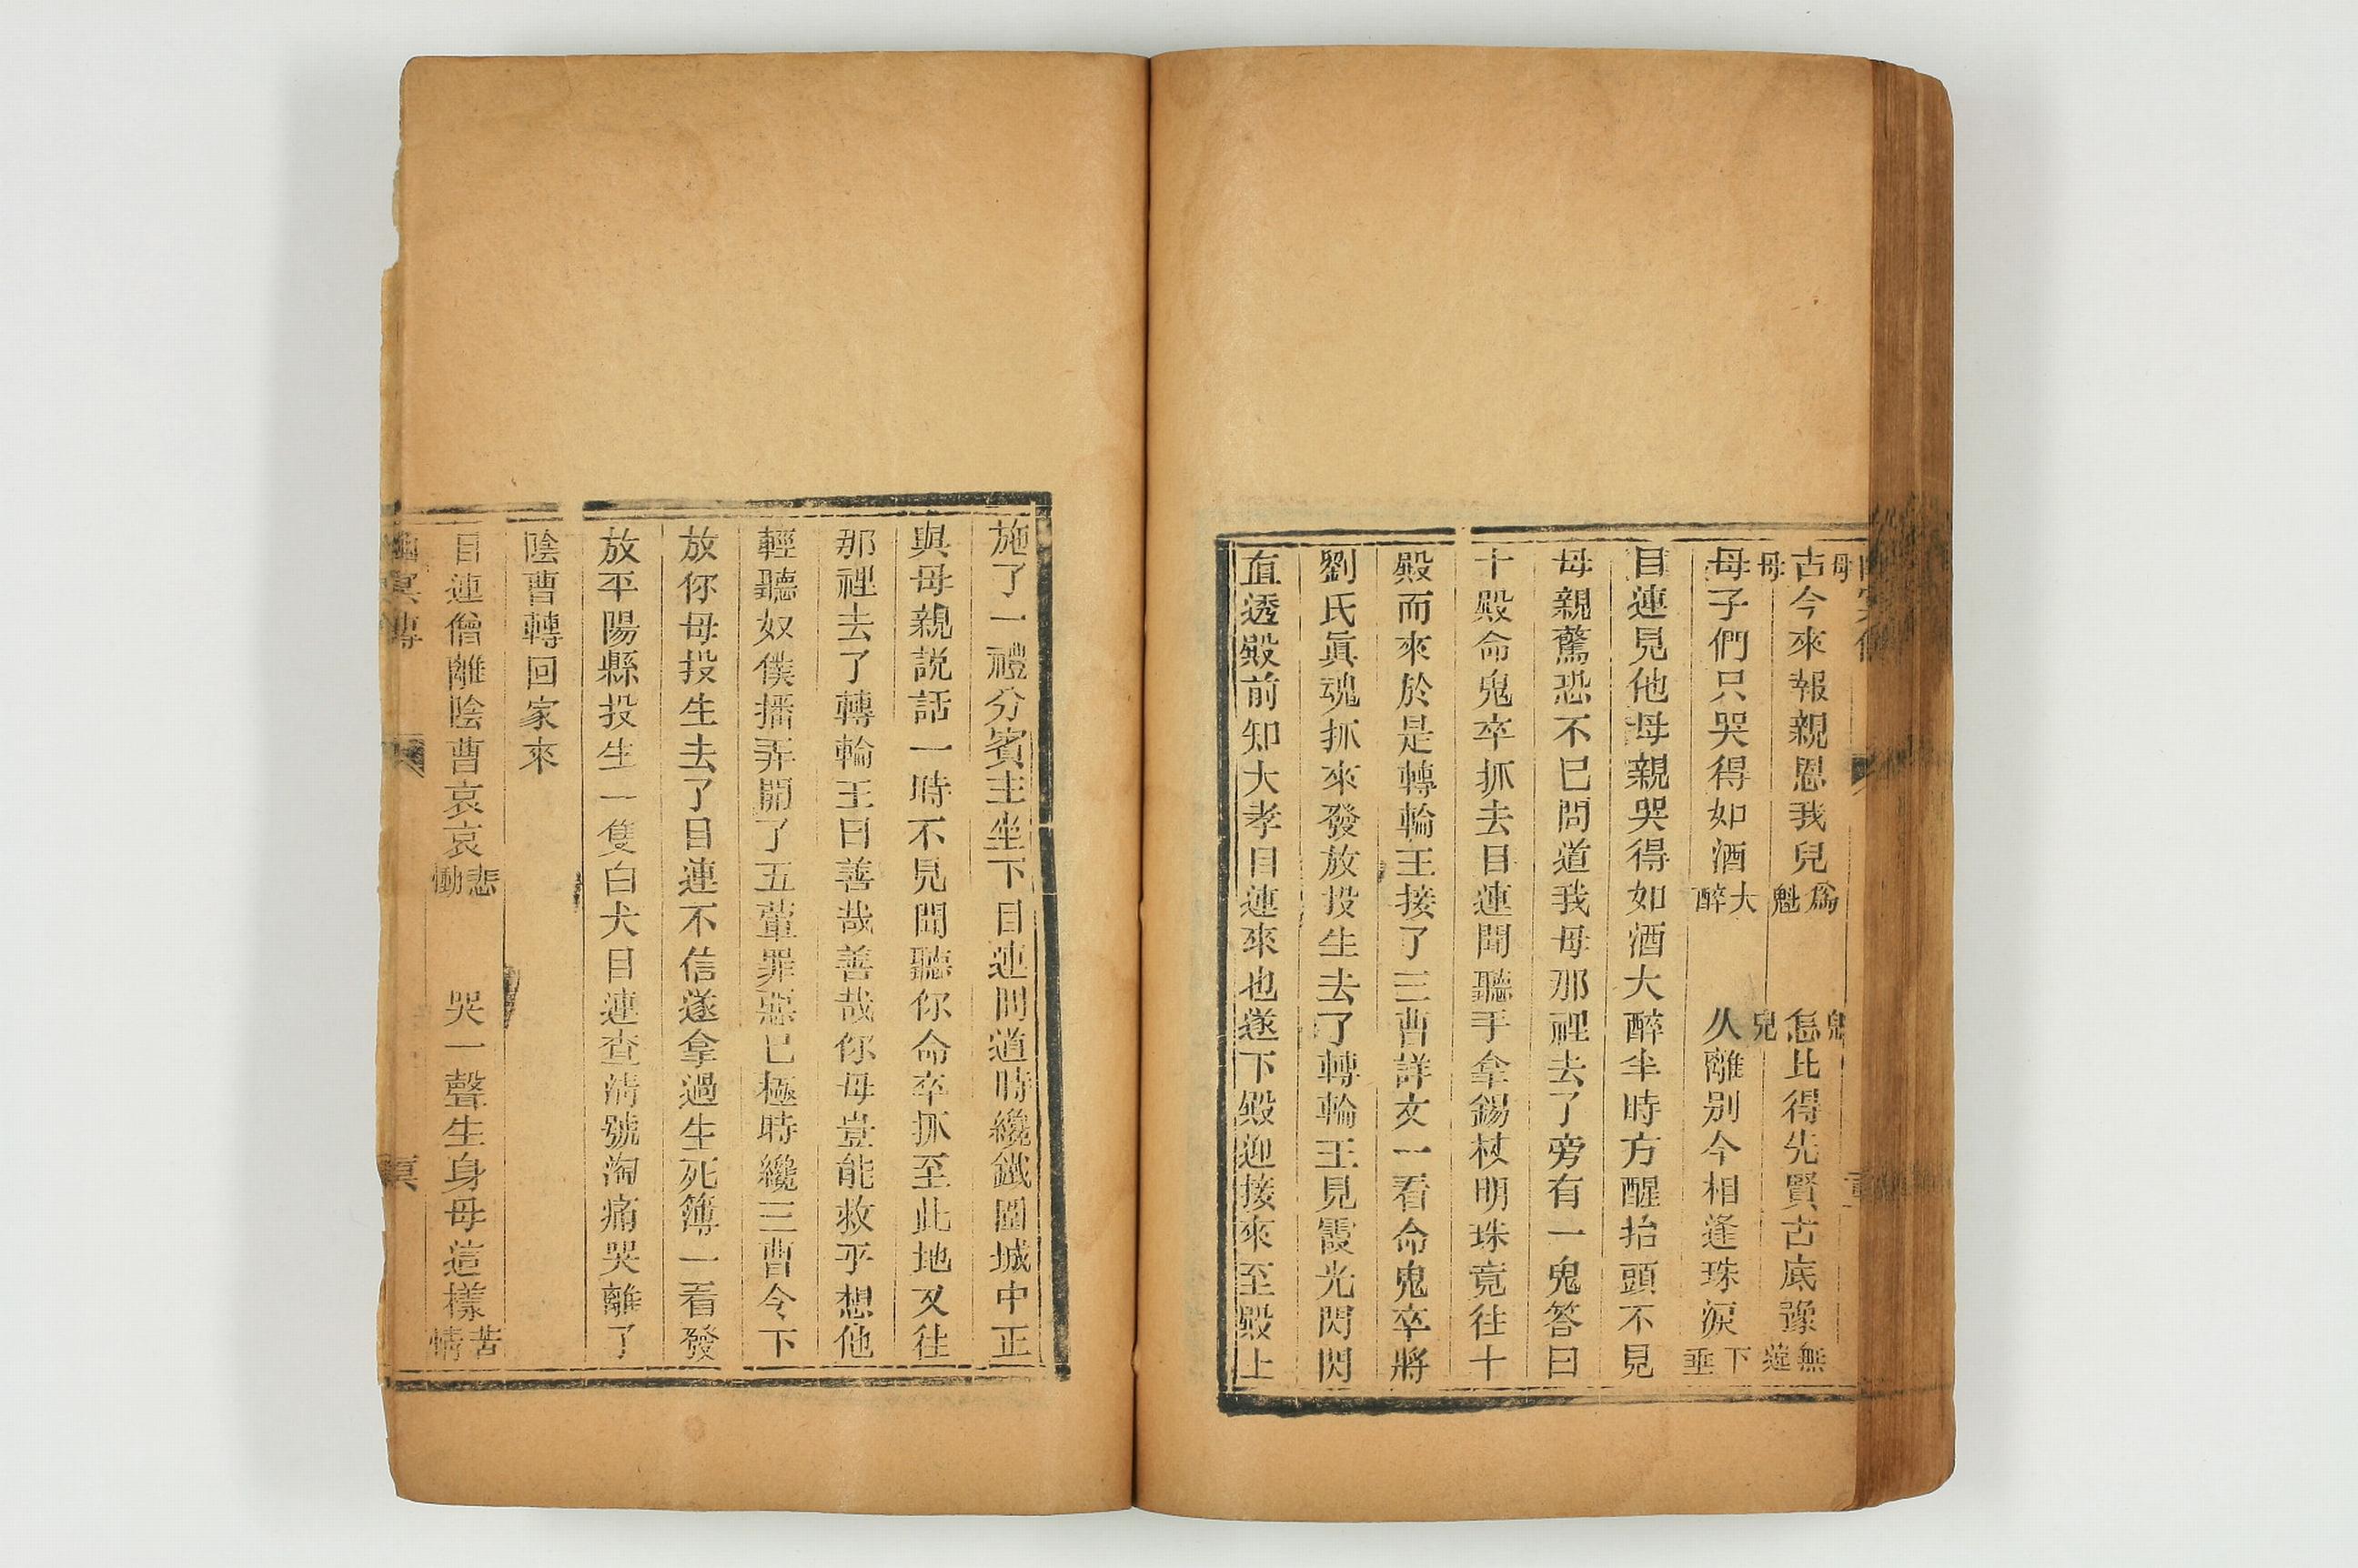 古今來報親恩我兒爲魁　怎比得先賢古底豫無違
母子們只哭得如酒大醉　乆離别今相逢珠淚下垂
目連見他母親哭得如酒大醉半時方醒抬頭不見
母親驚恐不已問道我母那裡去了旁有一鬼答曰
十殿命鬼卒抓去目連聞聽手拿錫杖明珠竟往十
殿而來於是轉輪王接了三曹詳文一看命鬼卒將
劉氏眞魂抓來發放投生去了轉輪王見霞光閃閃
直透殿前知大孝目連來也遂下殿迎接來至殿上
施了一禮分賓主坐下目連問道時纔鐵圍城中正
與母親説話一時不見聞聽你命卒抓至此地又往
那裡去了轉輪王曰善哉善哉你母豈能救乎想他
輕聽奴僕播弄開了五葷罪惡已極時纔三曹令下
放你母投生去了目連不信遂拿過生死簿一看發
放平陽縣投生一隻白犬目連查清號淘痛哭離了
陰曹轉回家來
目連僧離陰曹哀哀悲慟　哭一聲生身母這樣苦情
幽冥傳